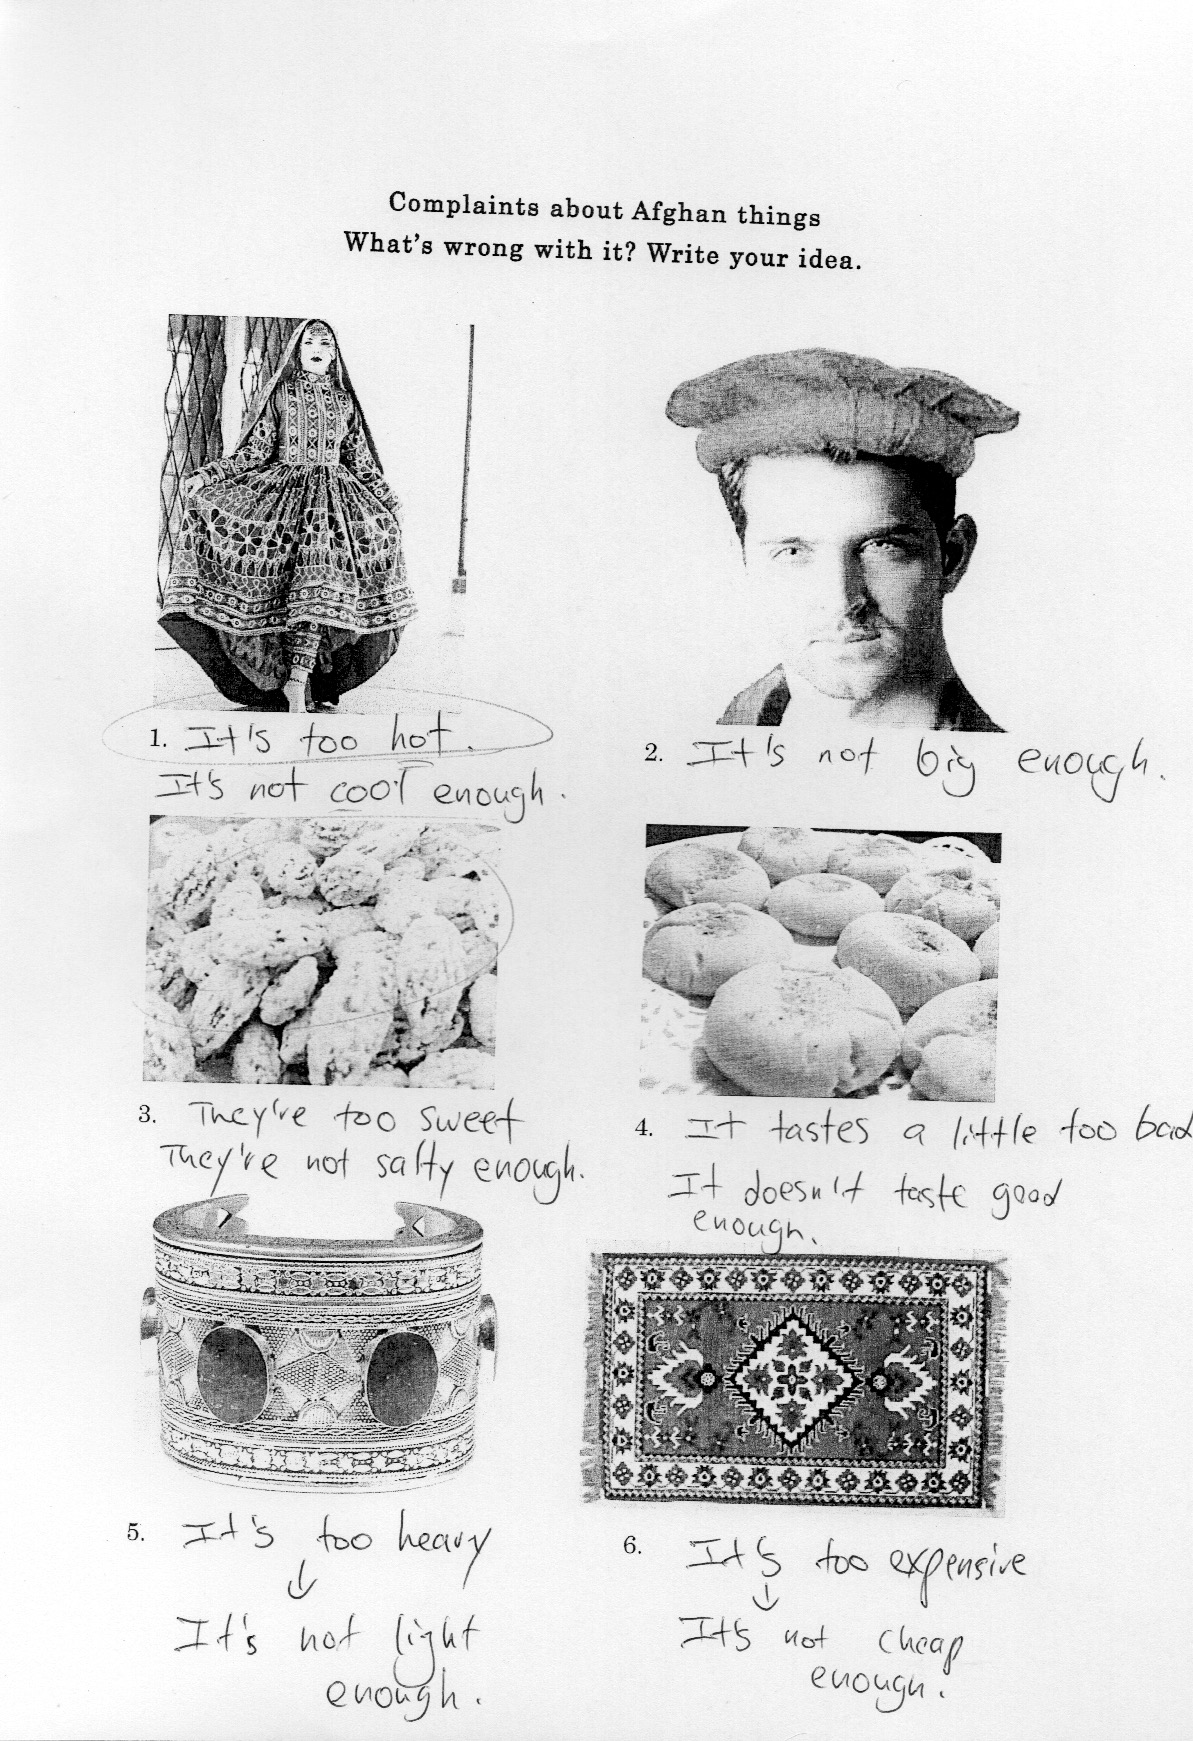 Complaints about Afghan things
What's wrong with it? Write your idea.
1. It's too hot.
It's not cool enough.
2. It's not big enough.
3. They're too sweet
They're not salty enough.
4. It tastes a little too bad
It doesn't taste good
enough.
5. It's too heavy
↓
It's not light
enough.
6. It's too expensive
↓
It's not cheap
enough.